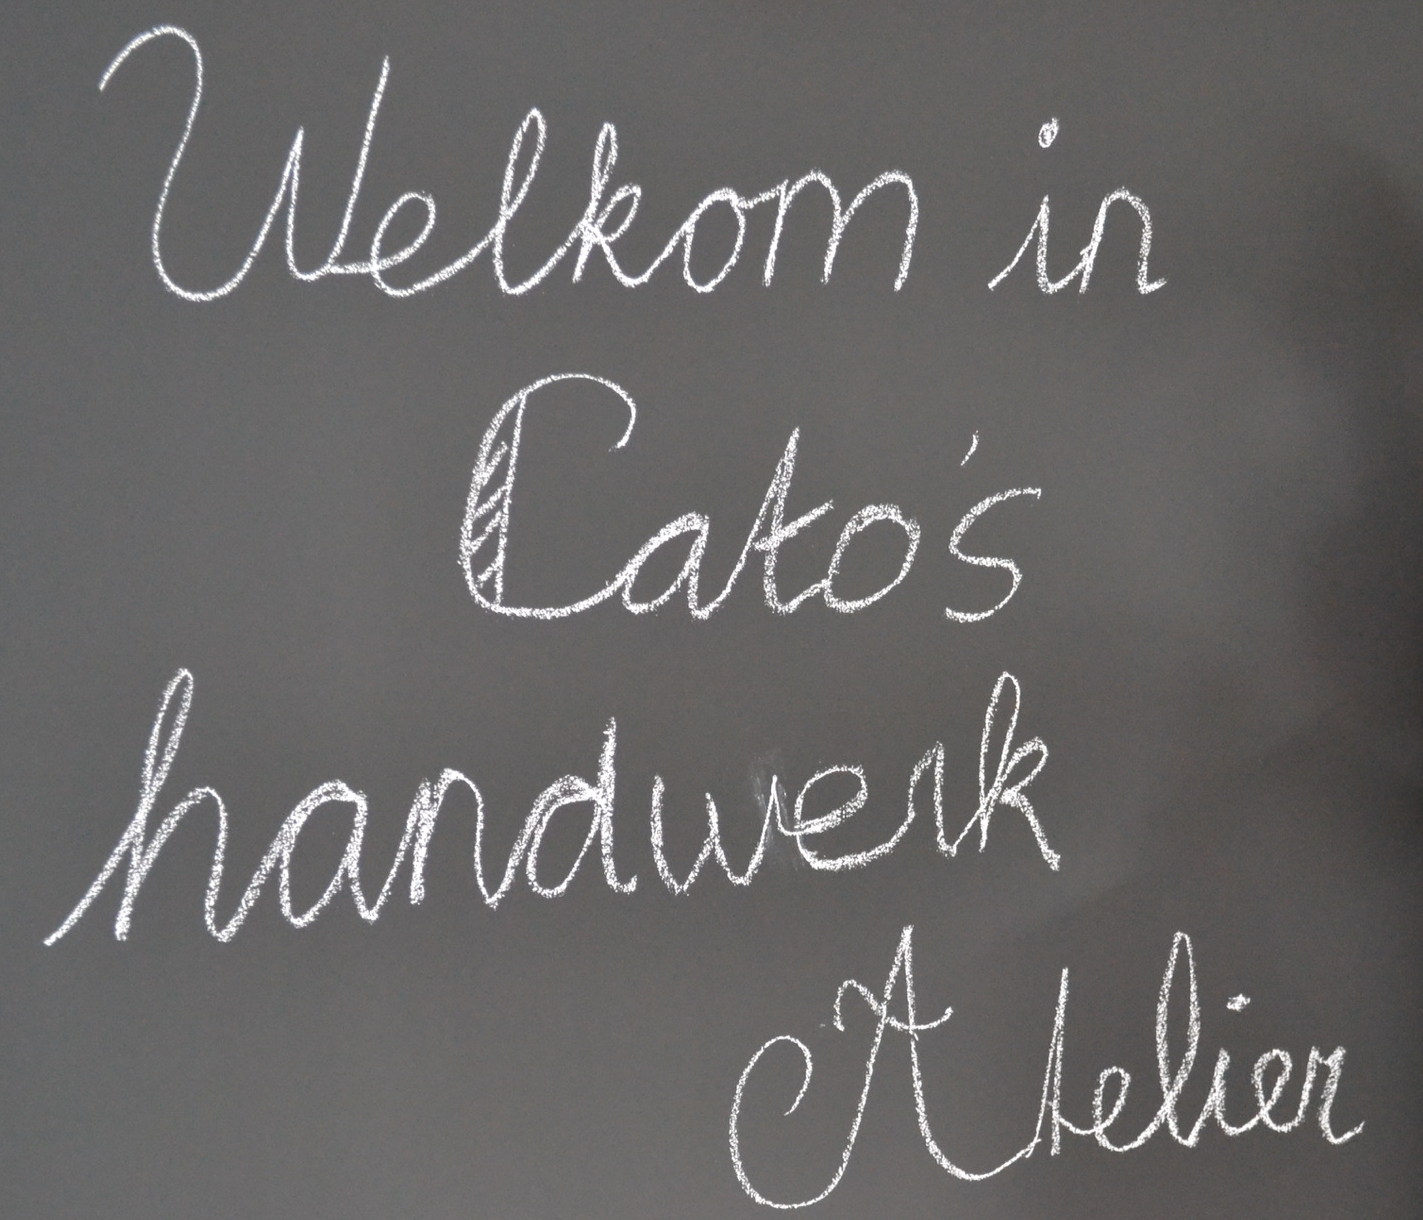 Welkom in
Cato's
handwerk
Atelier